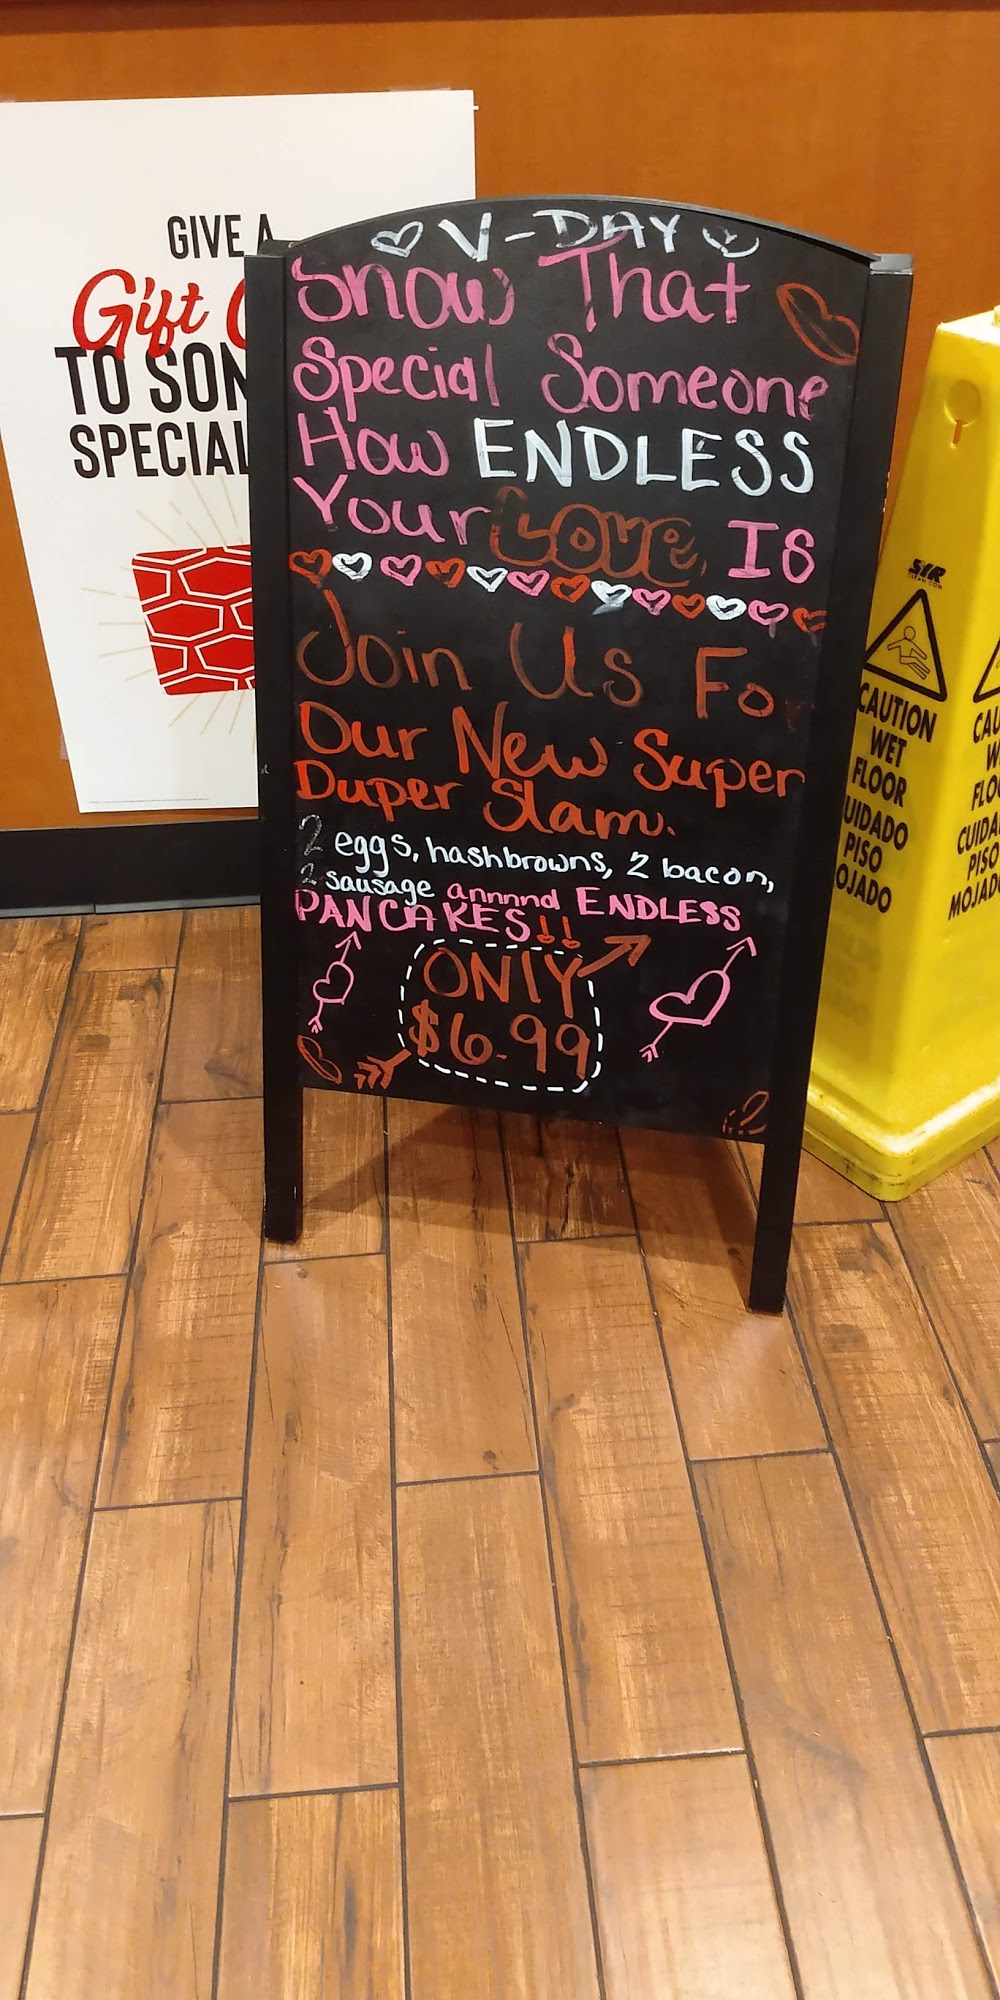 GIVE A
Gift
TO
SPECIAL
V-DAY
Show That
Special Someone
How ENDLESS
Your Love Is
Join Us For
Our New Super
Duper Slam.
2 eggs, hashbrowns, 2 bacon,
2 sausage annnnd ENDLESS
PANCAKES!!
ONLY
$6.99
SIR
CAUTION
WET
FLOOR
CUIDADO
PISO
MOJADO